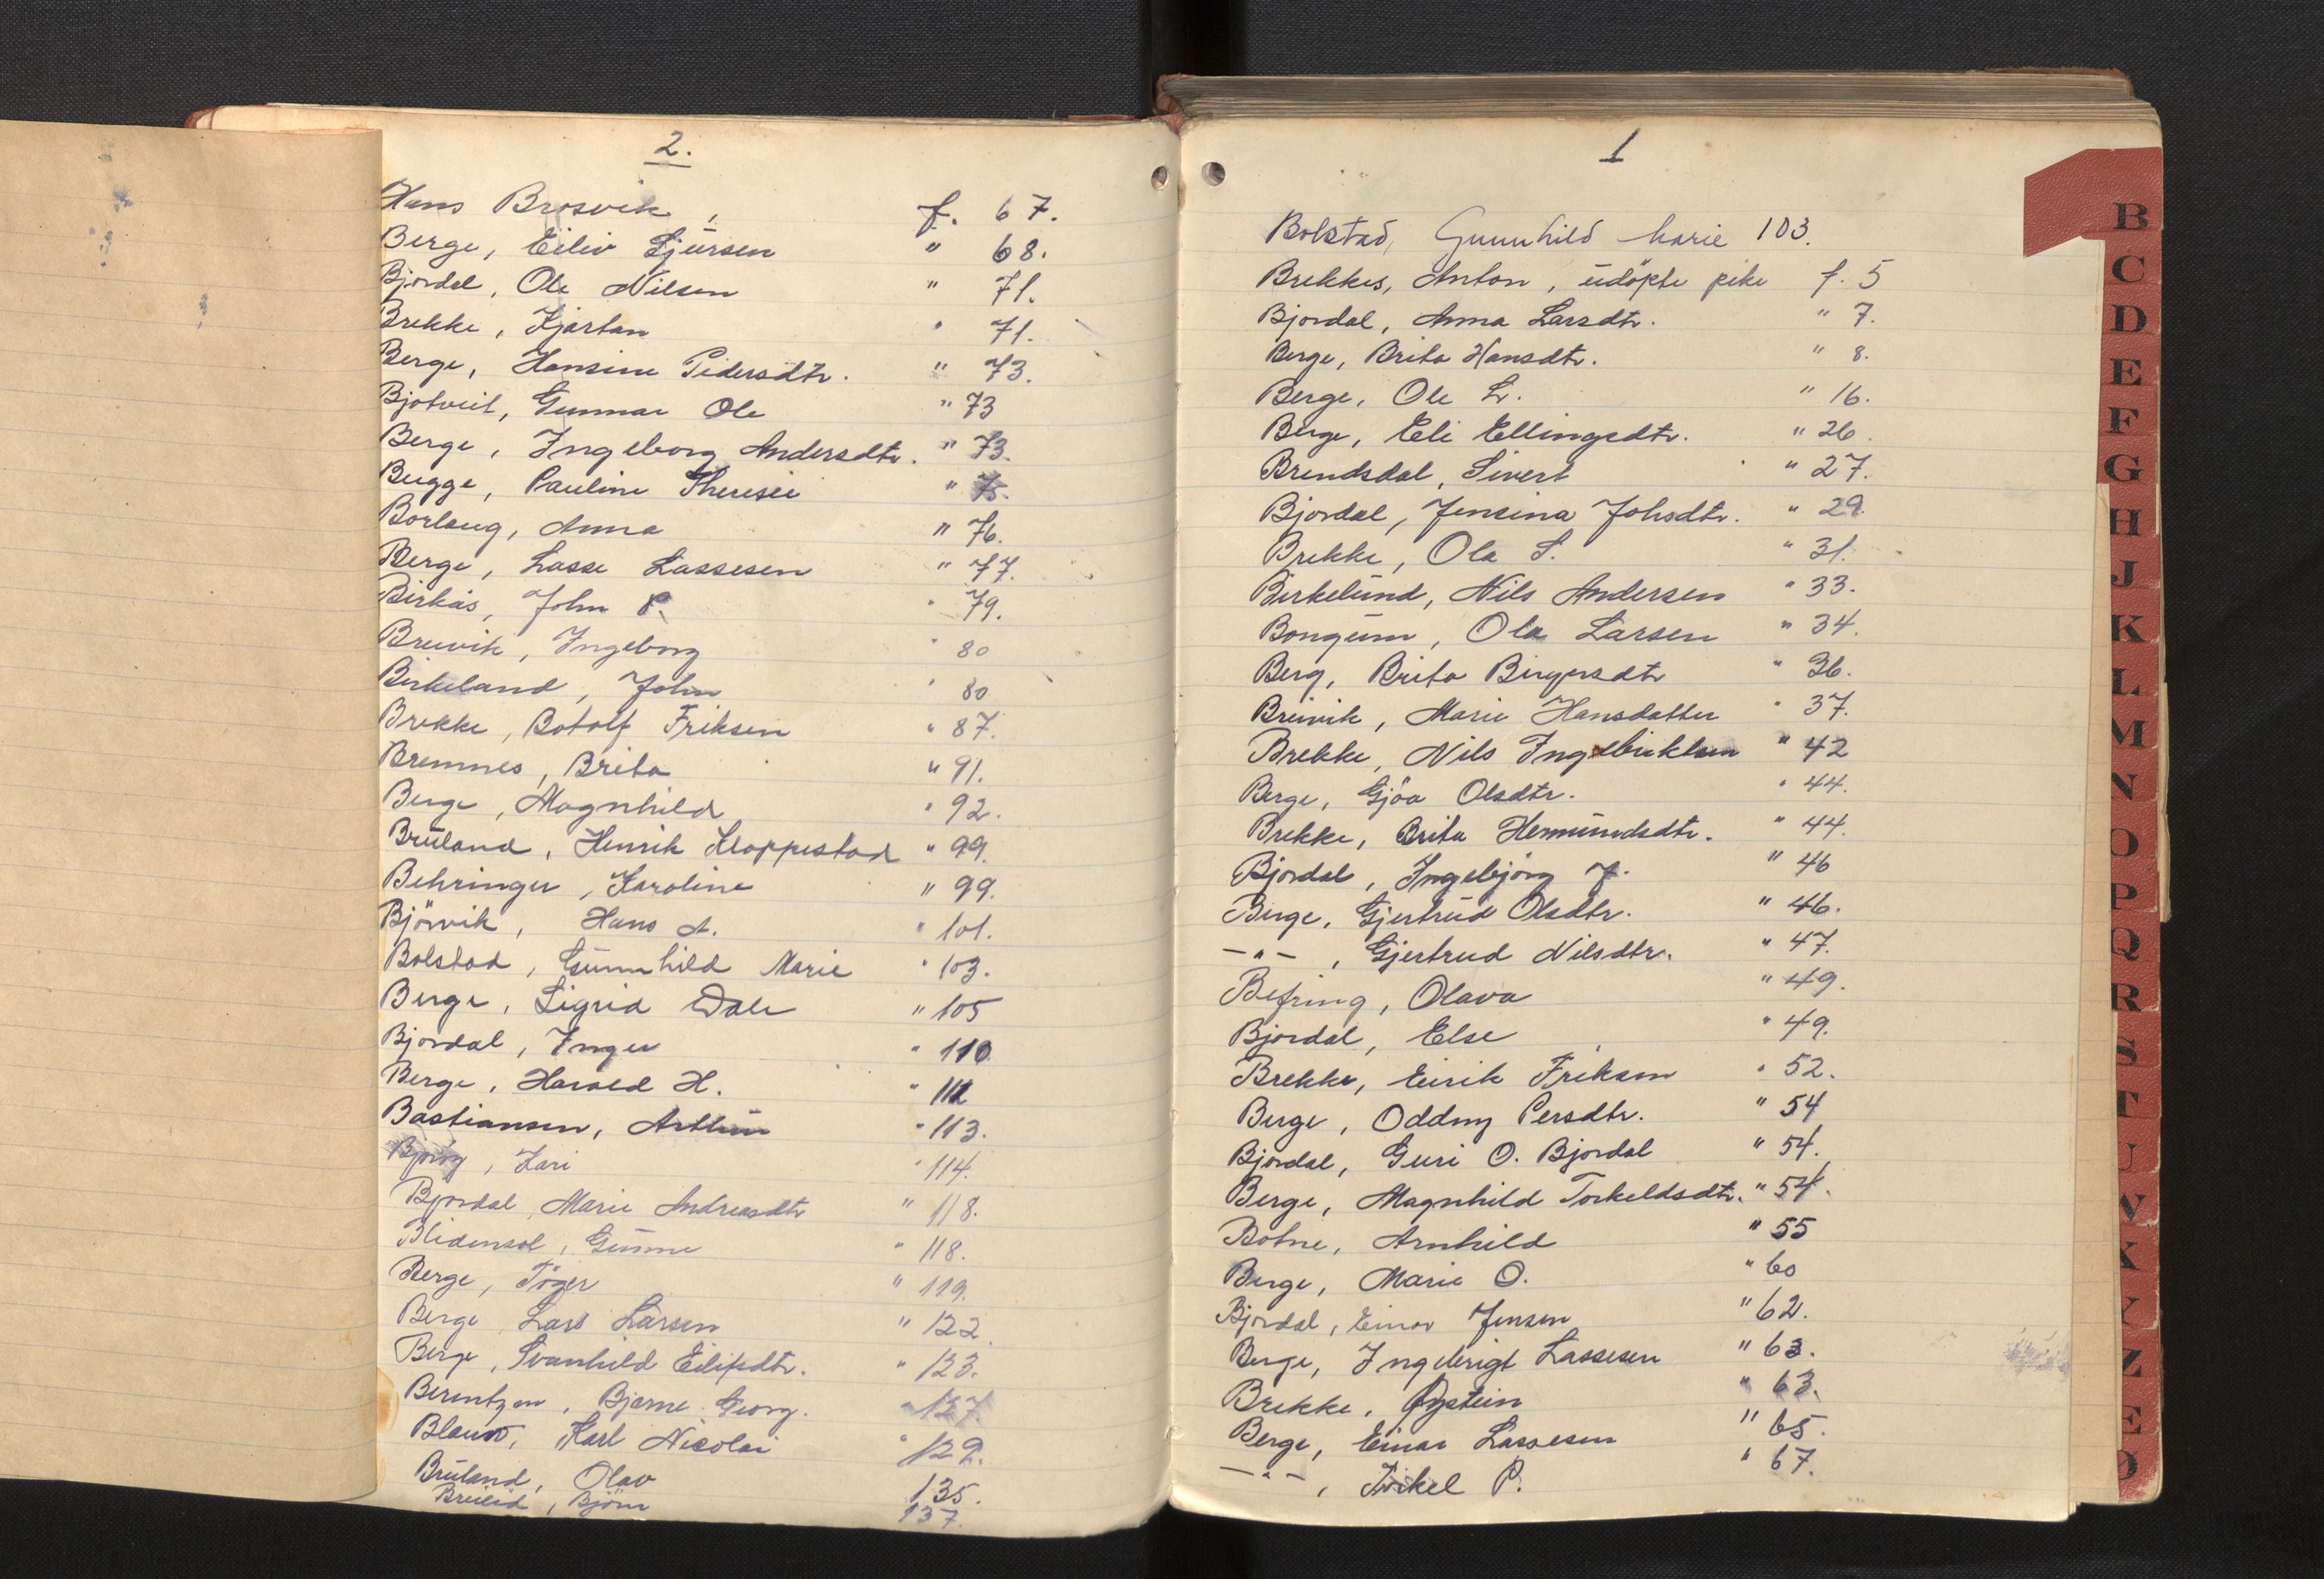 2.
Hans Brosvik, f. 67.
Berge, Eiliv Sjursen " 68.
Bjordal, Ole Nilsen " 71.
Brekke, Kjartan " 71.
Berge, Hansine Pedersdtr. " 73.
Bjotveit, Gunnar Ole " 73
Berge, Ingeborg Andersdtr. " 73.
Bugge, Pauline Theresie " 75.
Borlaug, Anna " 76.
Berge, Lasse Lassesen " 77.
Birkås, John P. " 79.
Breivik, Ingeborg " 80
Birkeland, John " 80
Brekke, Botolf Eriksen " 87.
Bremnes, Brita " 91.
Berge, Magnhild " 92.
Bruland, Henrik Kloppestad " 99.
Behringer, Karoline " 99.
Björvik, Hans A. " 101.
Bolstad, Gunnhild Marie " 103.
Berge, Sigrid Dale " 105
Bjordal, Inger " 110.
Berge, Harald H. " 112
Bastiansen, Arthur " 113.
Kari " 114.
Bjordal, Marie Andreasdtr " 118.
Blidensol, Gunne " 118.
Berge, Töger " 119.
Berge, Lars Larsen " 122.
Berge, Svanhild Eilifsdtr. " 123.
Berentzen, Bjarne Georg. " 127.
Karl Nicolai " 129.
Bruland, Olav 135.
Björn 137.
1
Bolstad, Gunnhild Marie 103.
Brekkes, Anton, udöpte pike f. 5
Bjordal, Anna Larsdtr. " 7.
Berge, Brita Hansdtr. " 8.
Berge, Ole L. " 16.
Berge, Eli Ellingsdtr. " 26.
Brendsdal, Sivert " 27.
Bjordal, Jensina Johsdtr. " 29.
Brekke, Ola S. " 31.
Birkelund, Nils Andersen " 33.
Bongum, Ola Larsen " 34.
Berg, Brita Birgersdtr " 36.
Breivik, Marie Hansdatter " 37.
Brekke, Nils Ingebriktsen " 42
Berge, Gjöa Olsdtr. " 44.
Brekke, Brita Hermundsdtr. " 44.
Bjordal, Ingebjörg J. " 46
Berge, Gjertrud Olsdtr. " 46.
– " – , Gjertrud Nilsdtr. " 47.
Befring, Olava " 49.
Bjordal, Else " 49.
Brekke, Eirik Eriksen " 52.
Berge, Oddny Persdtr. " 54
Bjordal, Guri O. Bjordal " 54.
Berge, Magnhild Torkeldsdtr. " 54.
Botne, Arnhild " 55
Berge, Marie O. " 60
Bjordal, Einar Jensen " 62.
Berge, Ingebrigt Lassesen " 63.
Brekke, Øystein " 63.
Berge, Einar Lassesen " 65.
– " – , Torkel P. " 67.
B
C
D
E
F
G
H
J
K
L
M
N
O
P
Q
R
S
T
U
V
X
Y
Z
Æ
Ø